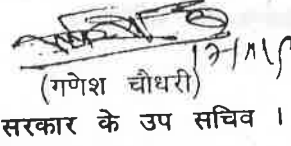 (गणेश चौधरी)
सरकार के उप सचिव ।